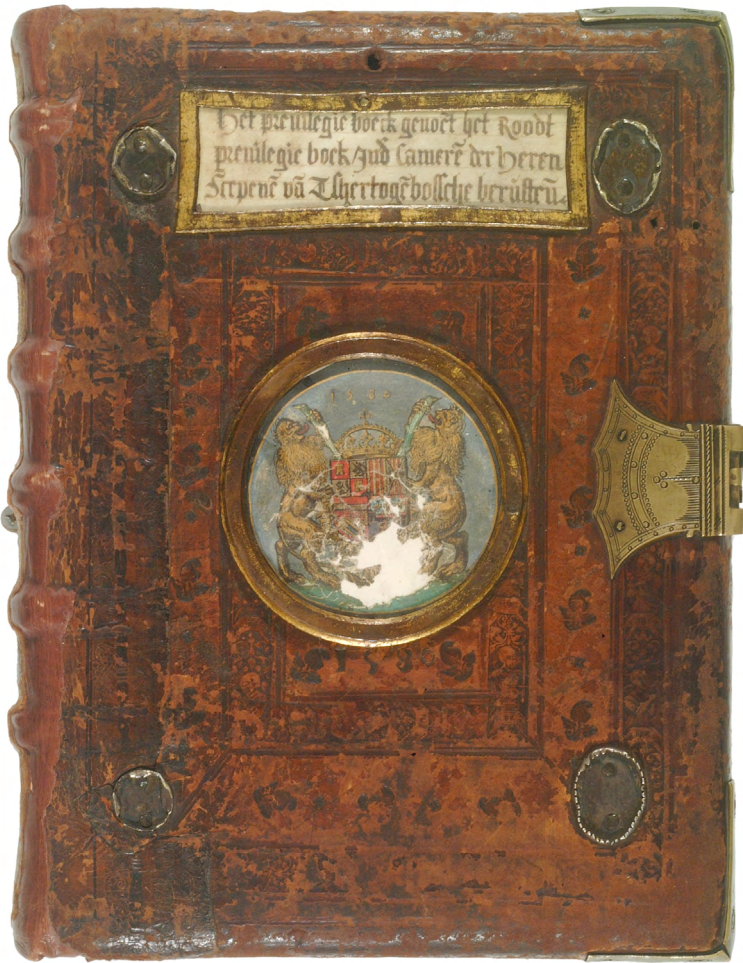 Het preuilegie boeck genoēt het Roodt
preuilegie boek Jnd Camerē der Heren
Scepenē vā Tshertogēbossche berūstēn.